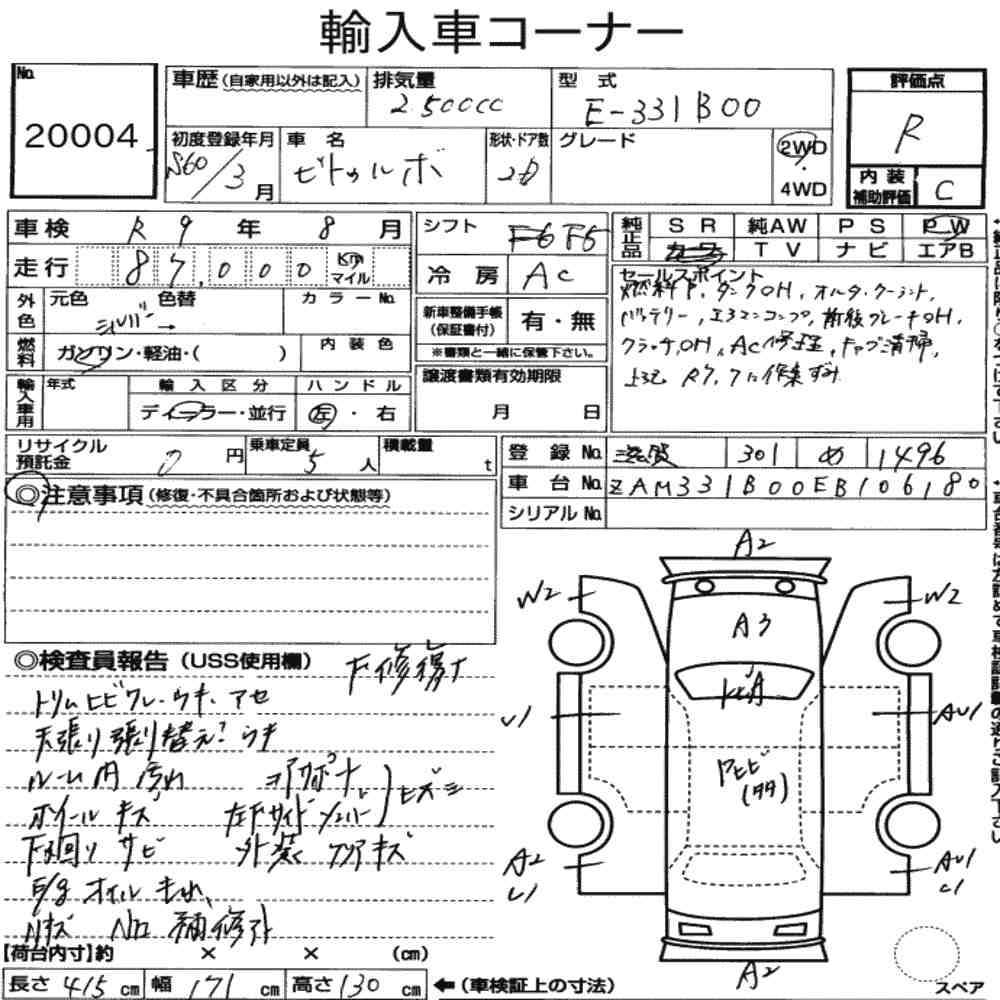 輸入車コーナー
No. 20004
車歴 (自家用以外は記入)
排気量 2.500cc
型式 E-331B00
評価点 R
初度登録年月 S60/3月
車名 ビトゥルボ
形状・ドア数 2D
グレード
2WD・4WD
内装補助評価 C
車検 R9年8月
シフト F6 F5
純正品 SR 純AW PS PW
カワ TV ナビ エアB
走行 87,000 Km マイル
冷房 AC
セールスポイント
燃料P,タンクOH,オルタ,クーラント,
バッテリー,エアコンコンプ,前後ブレーキOH,
クラッチOH,AC修理,キャブ清掃,
上記 R7,7に作業ずみ
外色 元色 シルバー → 色替 カラーNo.
新車整備手帳(保証書付) 有・無
※書類と一緒に保管下さい。
燃料 ガソリン・軽油・( ) 内装色
譲渡書類有効期限 月 日
輸入車用 年式 輸入区分 ディーラー・並行 ハンドル 左・右
リサイクル預託金 0円 乗車定員 5人 積載量 t
登録No. 滋賀 301 め 1496
車台No. ZAM331B00EB106180
シリアルNo.
◎注意事項 (修復・不具合箇所および状態等)
A2
W2 W2
A3
トビA
U1 AU1
Aヒビ
(タタ)
A2 U1
AU1 U1
A2
スペア
◎検査員報告 (USS使用欄) F修復有
トリム ヒビワレ・ウキ・アセ
天張り張り替え?ウキ
ルーム内 汚れ
ホイール キズ 左Fサイドメンバー ヒズミ
下回り サビ 外装 小キズ
E/g オイル もれ
【荷台内寸】約 × × (cm)
長さ 415 cm 幅 171 cm 高さ 130 cm ←(車検証上の寸法)